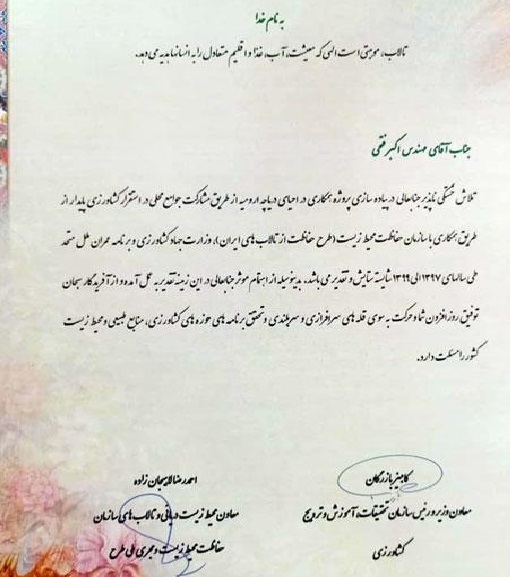 به نام خدا
تالاب، موهبتی است الهی که معیشت، آب، غذا و اقلیم متعادل را به انسانها هدیه می دهد.
جناب آقای مهندس اکبر فتحی
تلاش خستگی ناپذیر جنابعالی در پیاده سازی پروژه همکاری در احیای دریاچه ارومیه از طریق مشارکت جوامع محلی در استقرار کشاورزی پایدار از
طریق همکاری با سازمان حفاظت محیط زیست (طرح حفاظت از تالاب های ایران)، وزارت جهاد کشاورزی و برنامه عمران ملل متحد
طی سالهای ۱۳۹۷ الی ۱۳۹۹ شایسته ستایش و تقدیر می باشد. بدینوسیله از اهتمام موثر جنابعالی در این زمینه تقدیر به عمل آمده و از آفریدگار سبحان
توفیق روزافزون شما و حرکت به سوی قله های سرافرازی و سربلندی و تحقق برنامه های حوزه های کشاورزی، منابع طبیعی و محیط زیست
کشور را مسئلت دارد.
کامبیز بازرگان
معاون وزیر و رئیس سازمان تحقیقات، آموزش و ترویج
کشاورزی
احمدرضا لاهیجان زاده
معاون محیط زیست دریایی و تالاب های سازمان
حفاظت محیط زیست و مجری ملی طرح